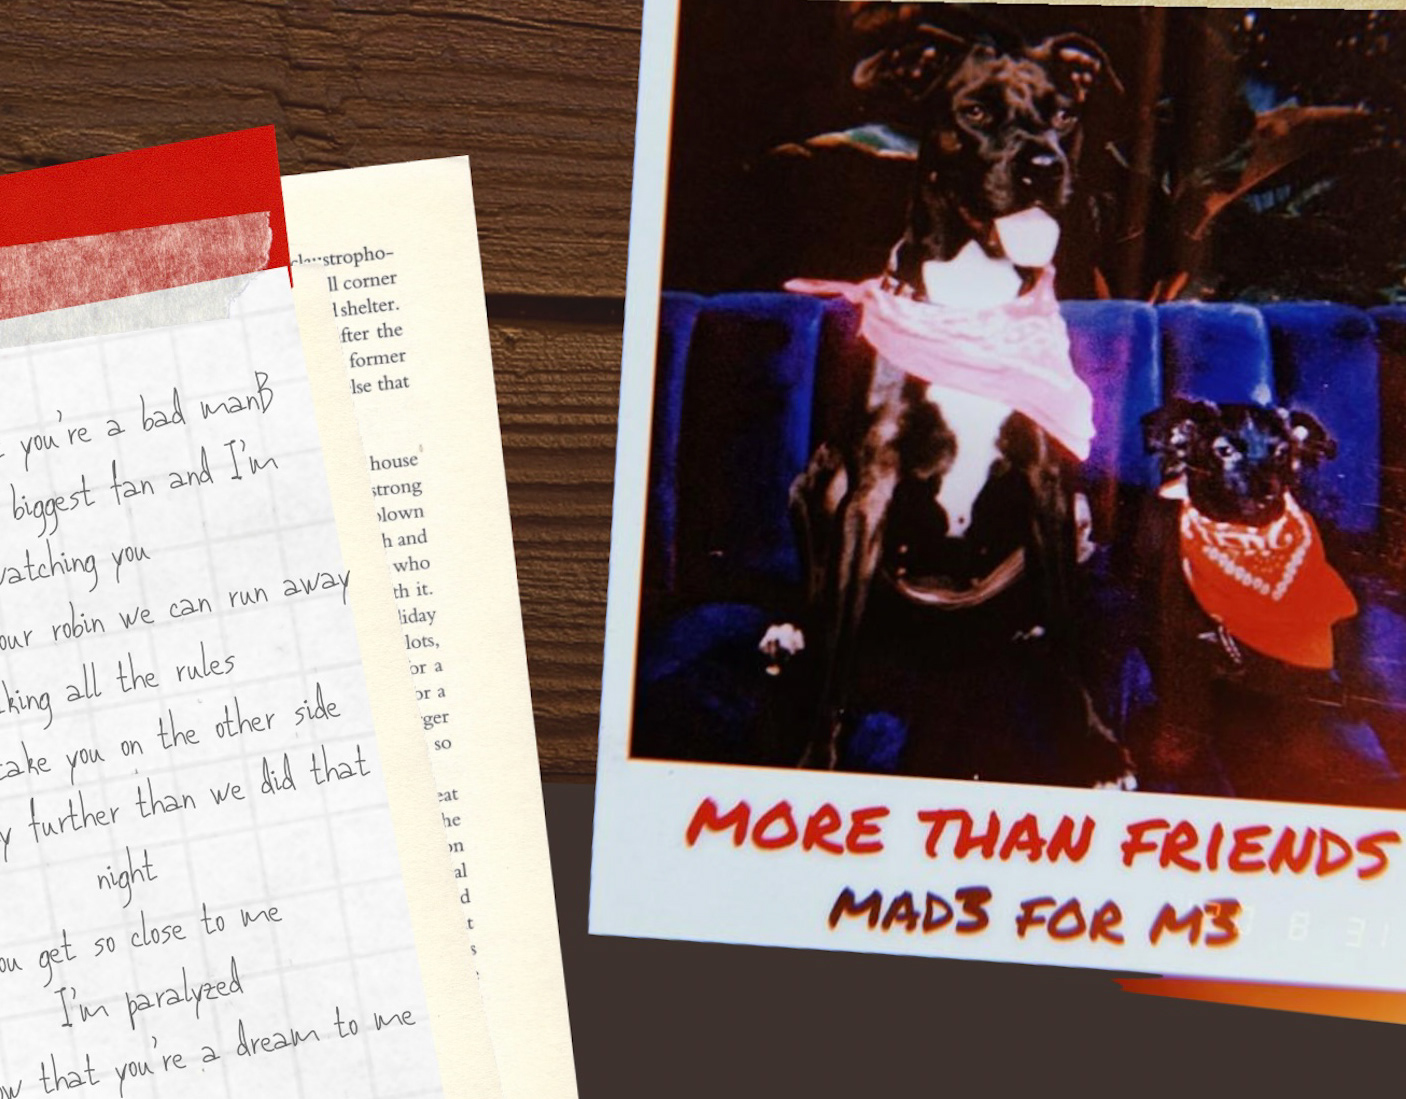 you're a bad manB
biggest fan and I'm
watching you
our robin we can run away
king all the rules
take you on the other side
y further than we did that
night
ou get so close to me
I'm paralyzed
ow that you're a dream to me
claustropho-
ll corner
shelter.
fter the
former
lse that
house
strong
blown
h and
who
th it.
liday
lots,
or a
or a
ger
so
eat
he
on
al
d
t
s
MORE THAN FRIENDS
MAD3 FOR M3
8 31